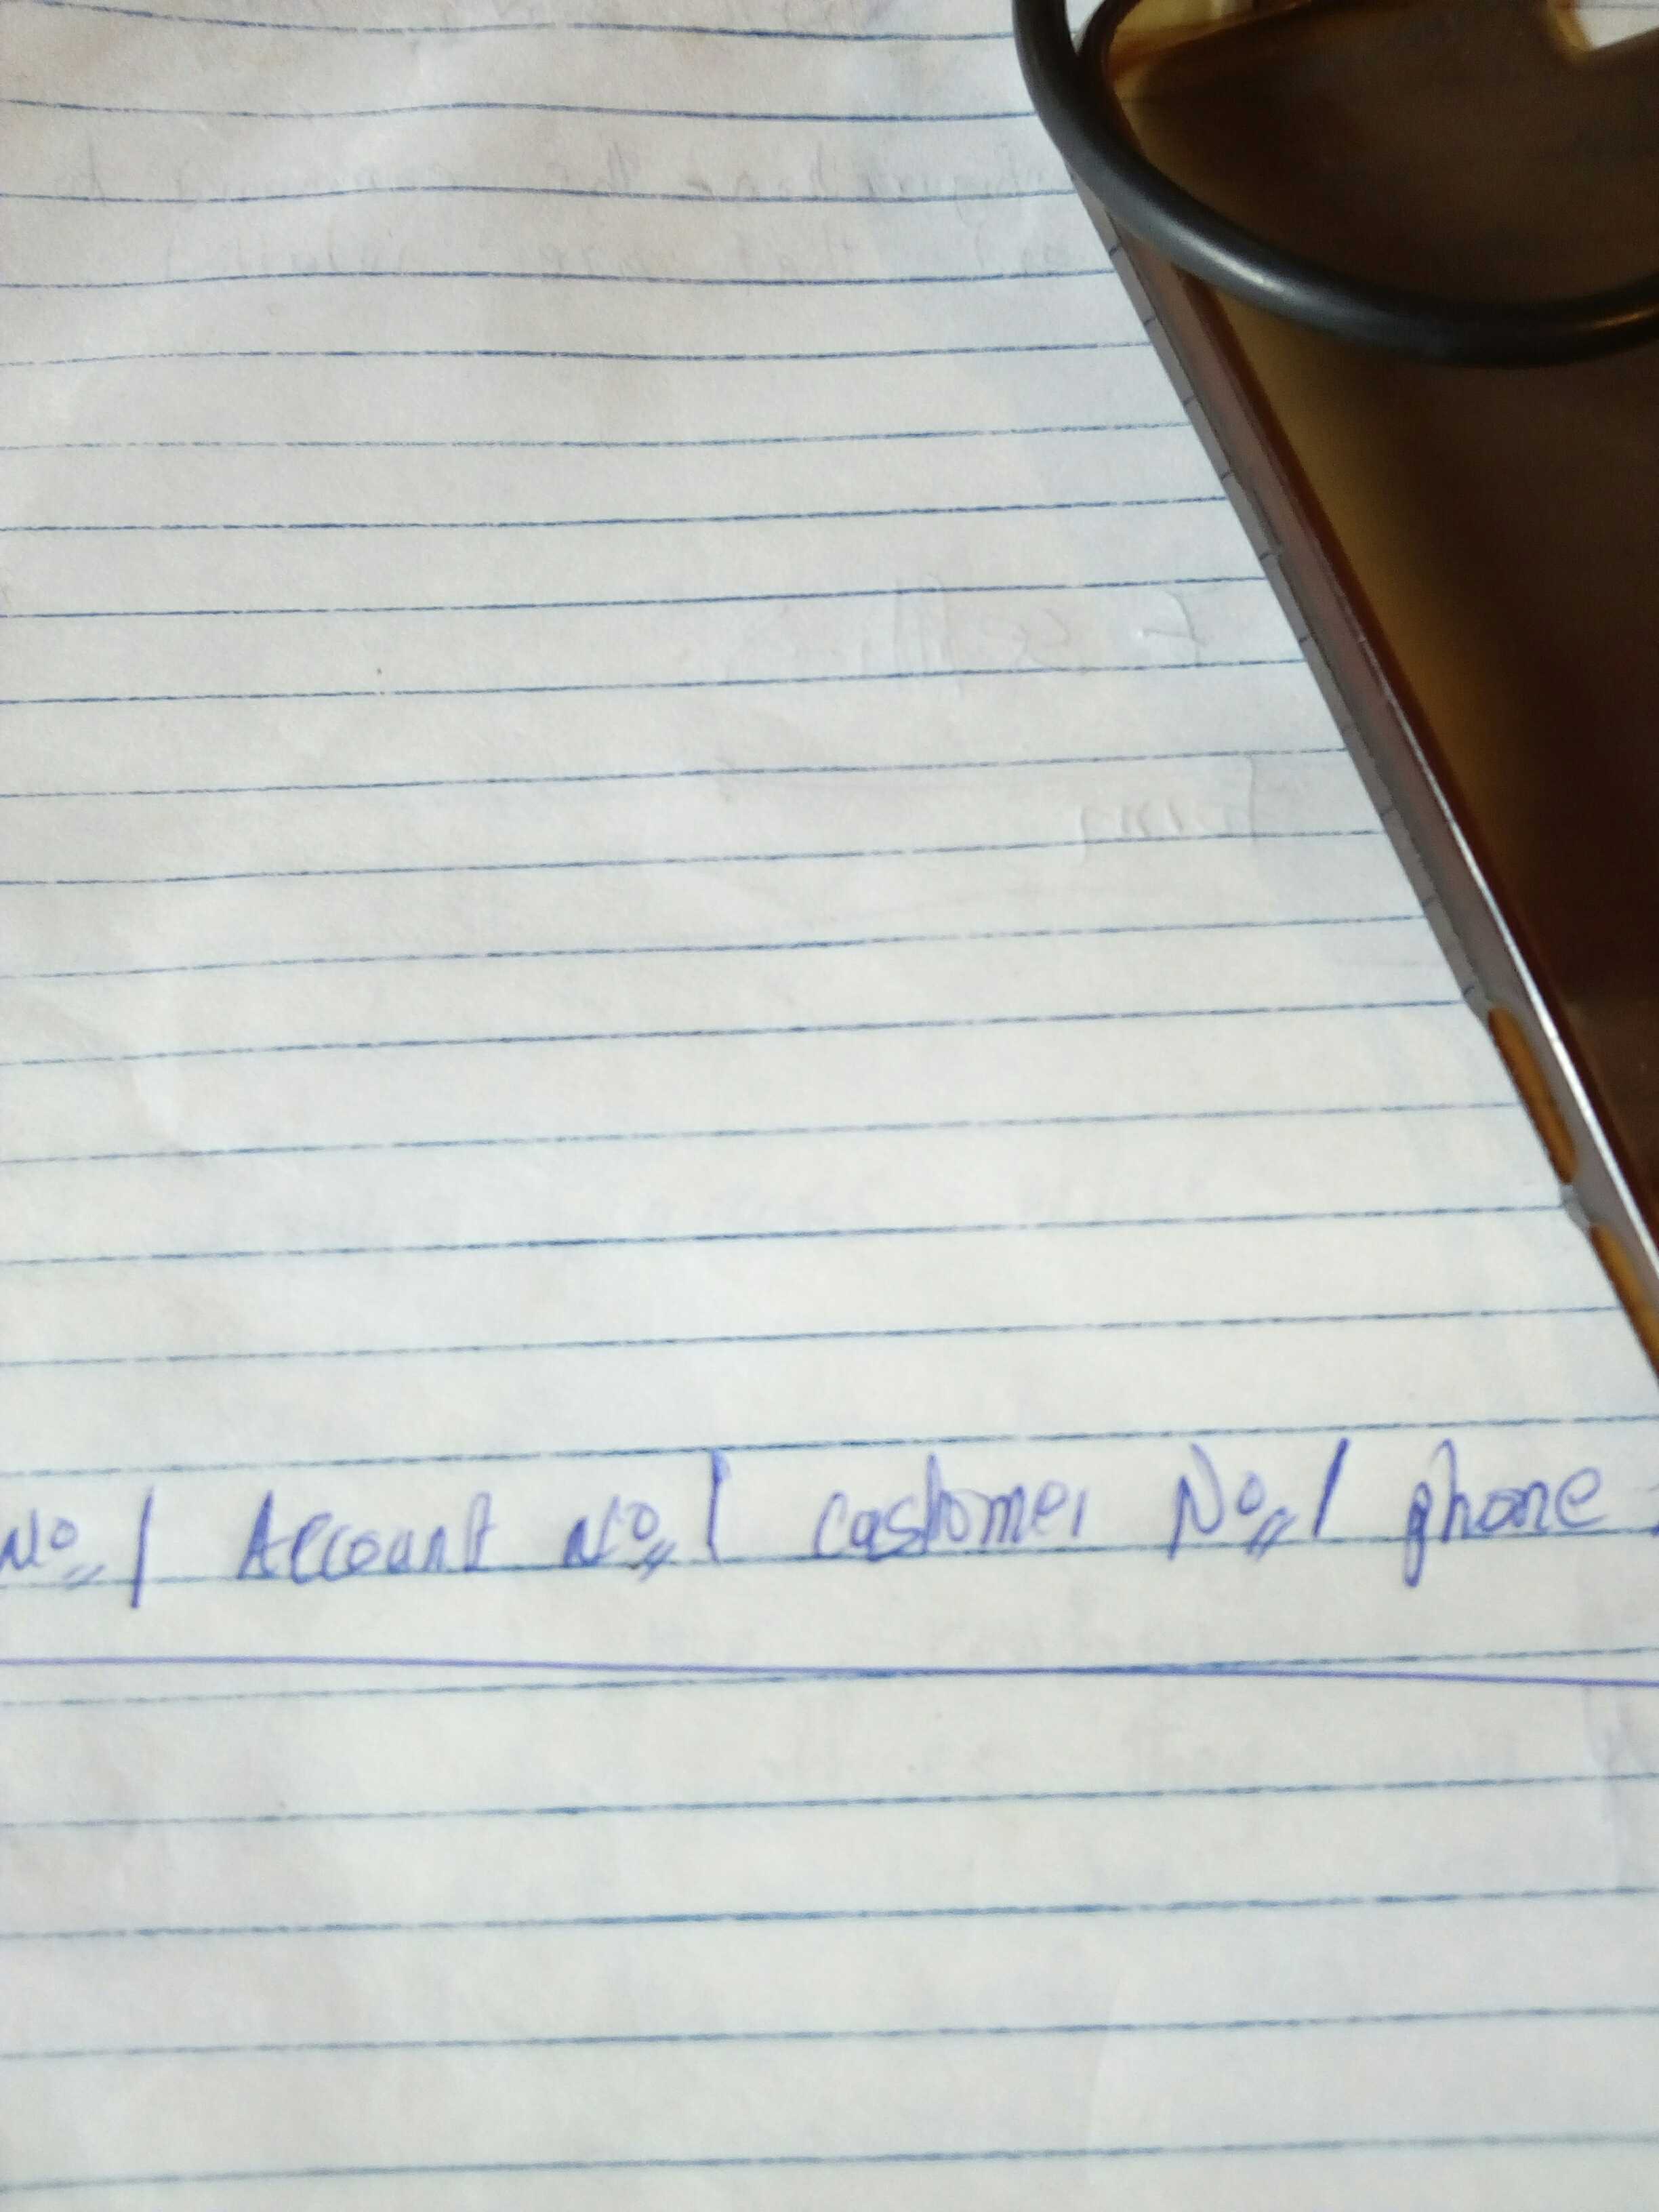 No / Account No / customer No / phone